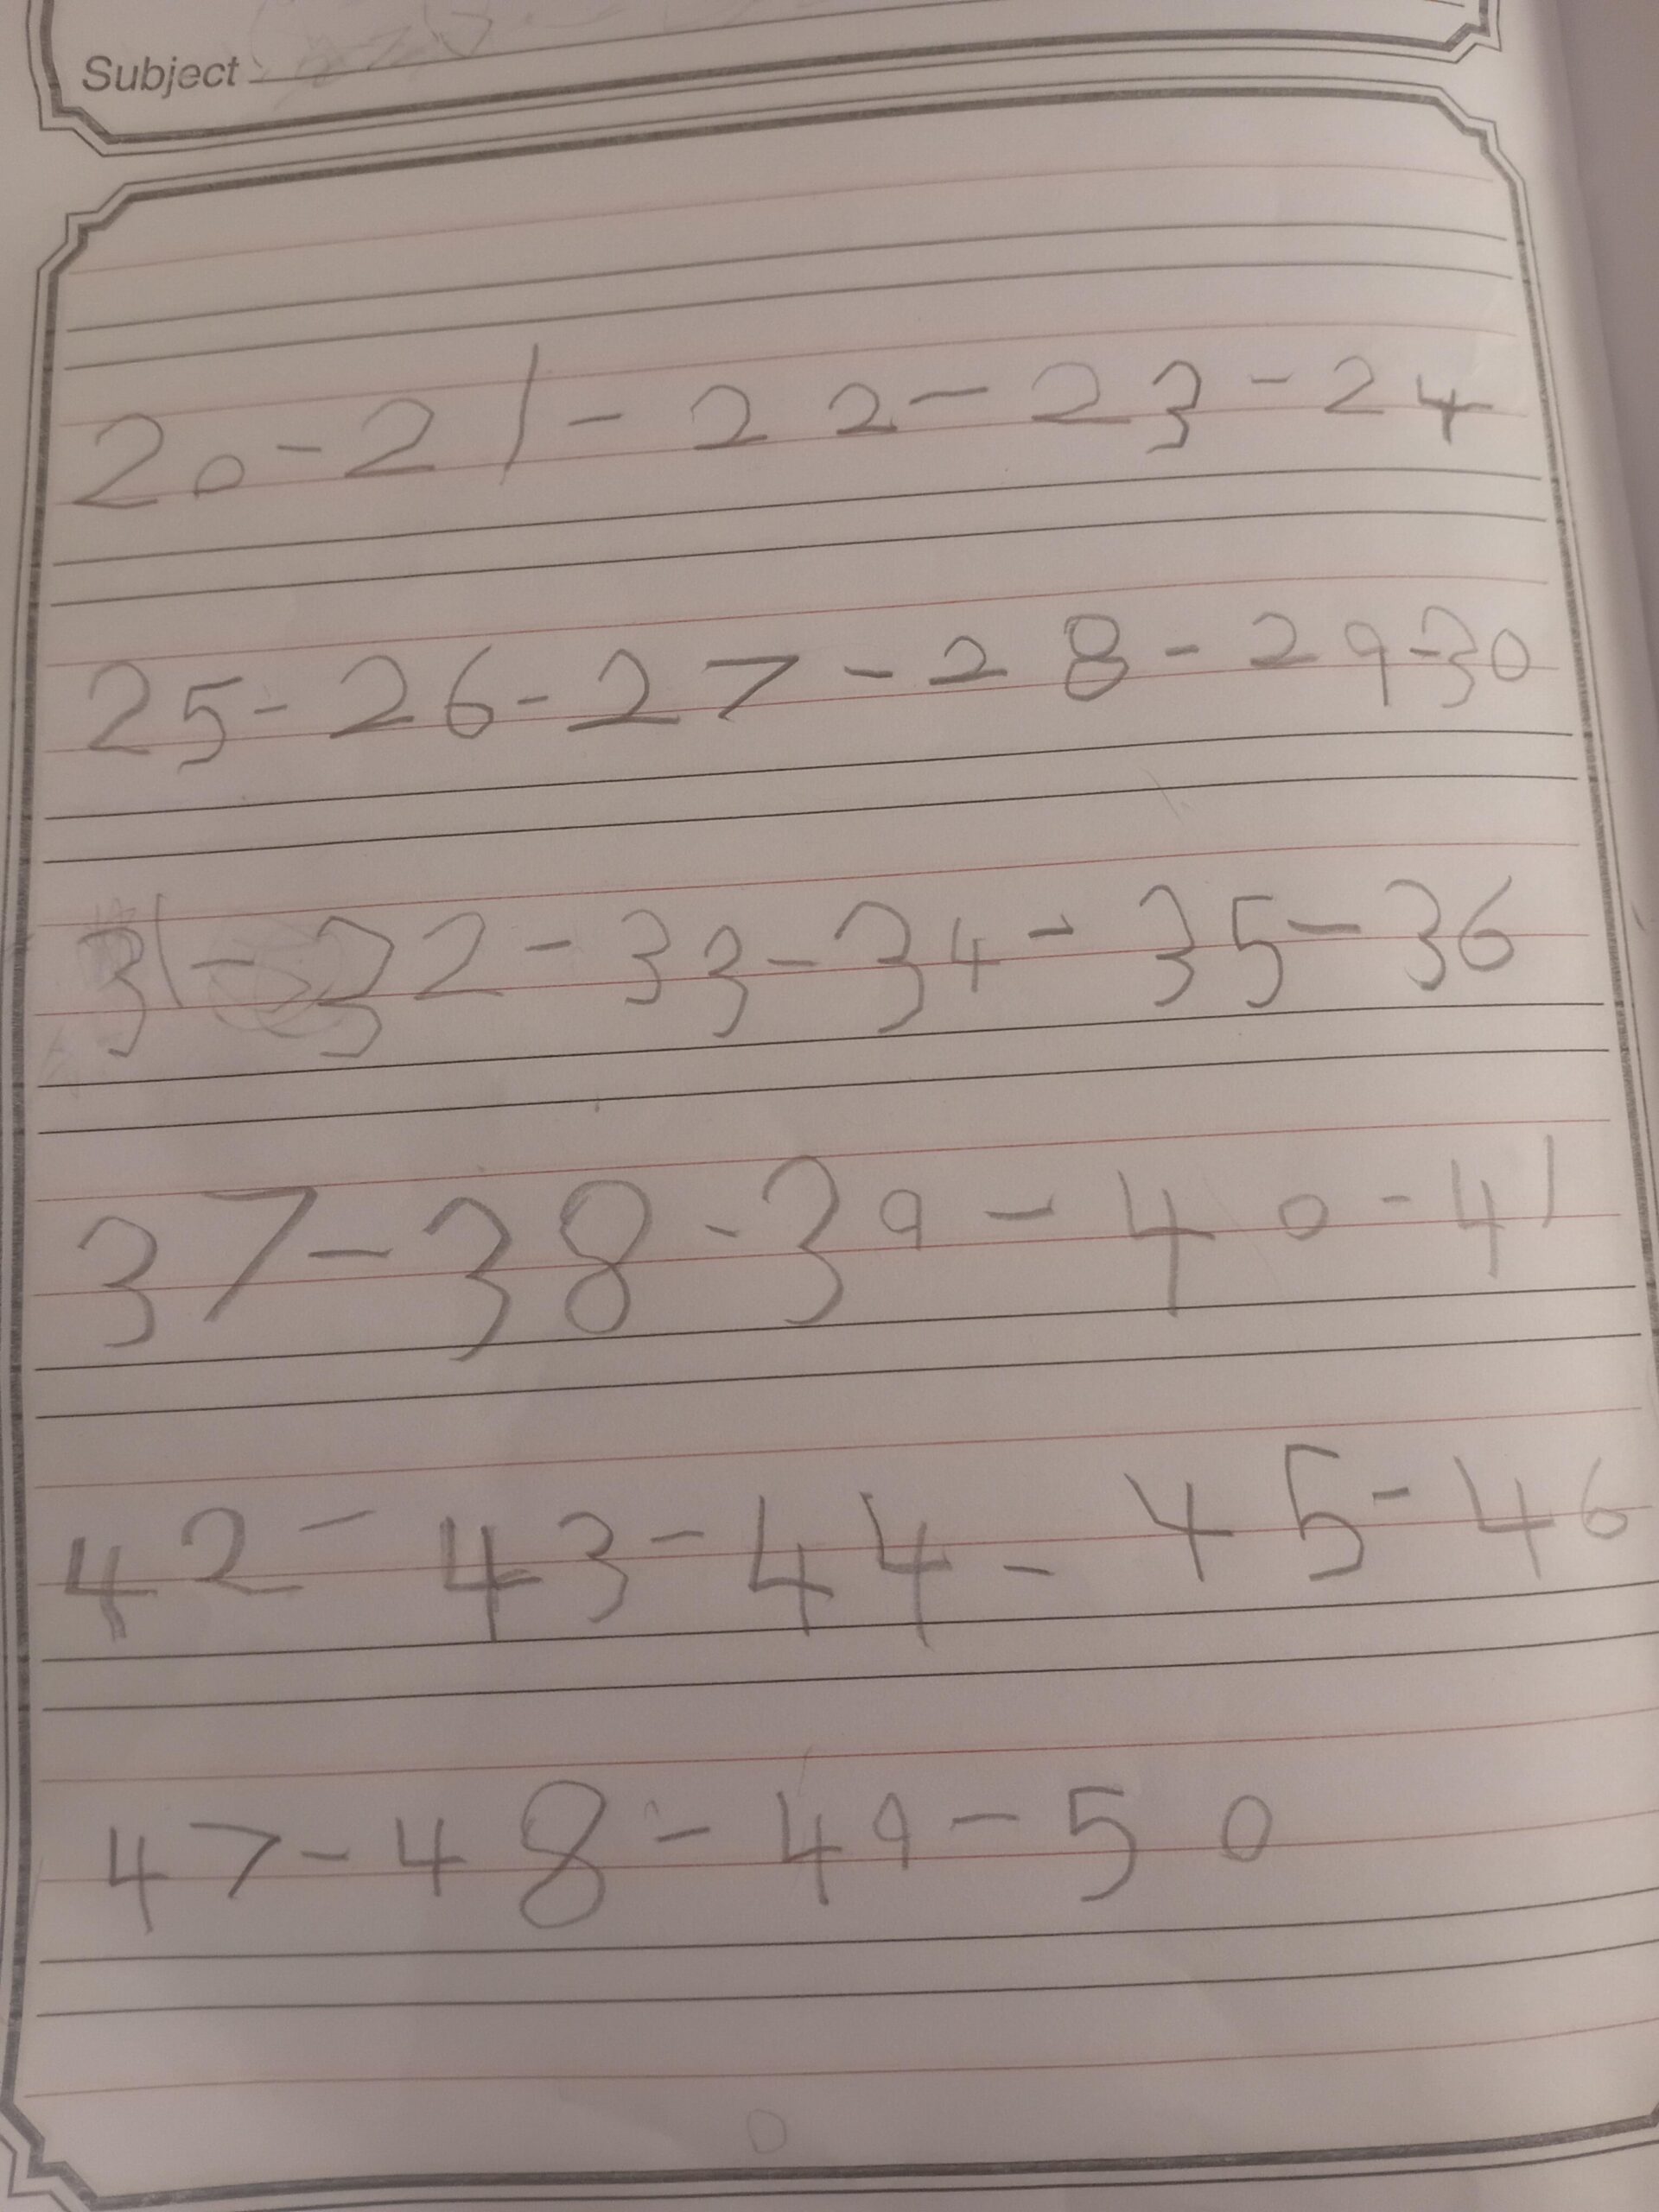 Subject
20-21-22-23-24
25-26-27-28-29-30
31-32-33-34-35-36
37-38-39-40-41
42-43-44-45-46
47-48-49-50
0